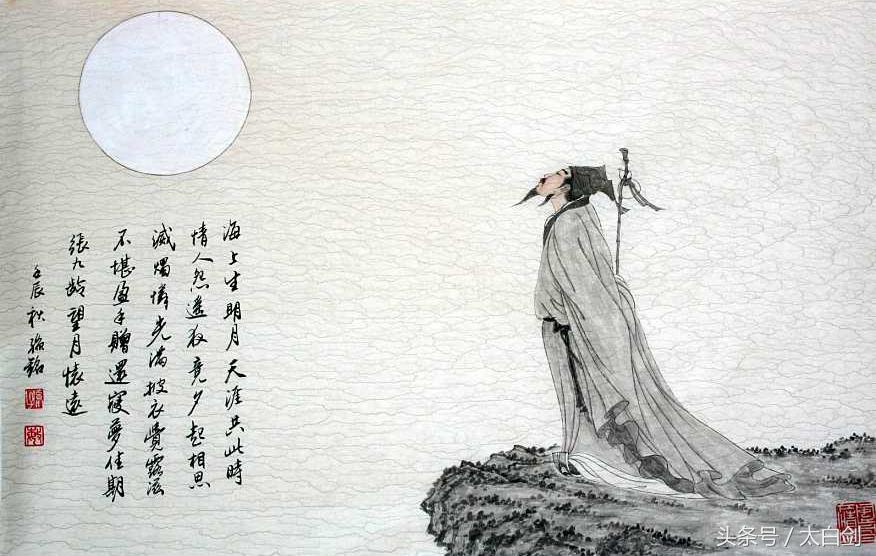 海上生明月天涯共此時
情人怨遙夜竟夕起相思
滅燭憐光滿披衣覺露滋
不堪盈手贈還寢夢佳期
張九齡望月懷遠
壬辰秋
头条号 / 太白剑